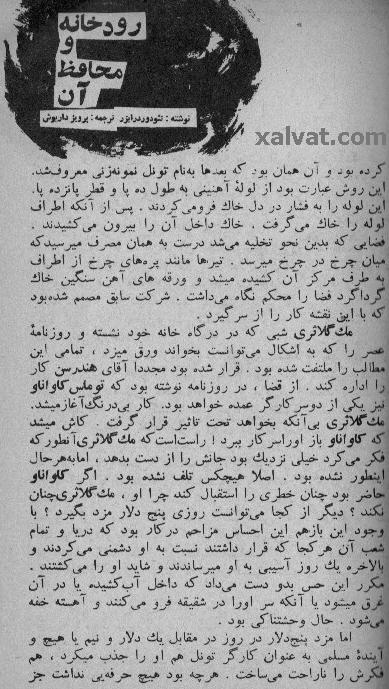 رودخانه
و
محافظ
آن
نوشته : تئودور درایزر ترجمه : پرویز داریوش
xalvat.com
کرده بود و آن همان بود که بعدها به‌نام تونل نمونه‌زنی معروف‌شد.
این روش عبارت بود از لولهٔ آهنینی به طول ده پا و قطر پانزده پا.
این لوله را به فشار در دل خاک فرومی‌کردند . پس از آنکه اطراف
لوله را خاک می‌گرفت . خاک داخل آن را بیرون می‌کشیدند .
فضایی که بدین نحو تخلیه می‌شد درست به همان مصرف میرسیدکه
میان چرخ در چرخ میرسد . تیرها مانند پره‌های چرخ از اطراف
به طرف مرکز آن کشیده میشد و ورقه های آهن سنگین خاك
گرداگرد فضا را محکم نگاه می‌داشت . شرکت سابق مصمم شده‌بود
که با این نقشه کار را از سرگیرد .
مك‌گلاثری شبی که در درگاه خانه خود نشسته و روزنامهٔ
عصر را که به اشکال می‌توانست بخواند ورق میزد ، تمامی این
مطالب را ملتفت شده بود . قرار شده بود مجددا آقای هندرسن کار
را اداره کند . از قضا ، در روزنامه نوشته بود که توماس‌کاواناو
نیز یکی از دوسرکارگر عمده خواهد بود. کار بی‌درنگ‌آغازمیشد.
مك‌گلاثری بی‌آنکه بخواهد تحت تاثیر قرار گرفت . کاش میشد
که کاواناو باز اوراسرکار ببرد ! راست‌است‌که مك‌گلاثری‌آنطورکه
فکر می‌کرد خیلی نزدیك بود جانش را از دست بدهد ، امابه‌هرحال
اینطور نشده بود . اصلا هیچکس تلف نشده بود . اگر کاواناو
حاضر بود چنان خطری را استقبال کند چرا او ، مك‌گلاثری‌چنان
نکند ؟ دیگر از کجا می‌توانست روزی پنج دلار مزد بگیرد ؟ با
وجود این بازهم این احساس مزاحم درکار بود که دریا و تمام
شعب آن هرکجا که قرار داشتند نسبت به او دشمنی می‌کردند و
بالاخره یك روز آسیبی به او میرساندند و شاید او را می‌کشتند .
مکرر این حس بدو دست می‌داد که داخل آب‌کشیده یا در آن
غرق میشود یا آنکه سر اورا در شقیقه فرو می‌کنند و آهسته خفه
می‌شود . حال وحشتناکی بود .
اما مزد پنج‌دلار در روز در مقابل یك دلار و نیم یا هیچ و
آیندهٔ مسلمی به عنوان کارگر تونل هم او را جذب میکرد ، هم
فکرش را ناراحت می‌ساخت . هرچه بود هیچ حرفه‌یی نداشت جز